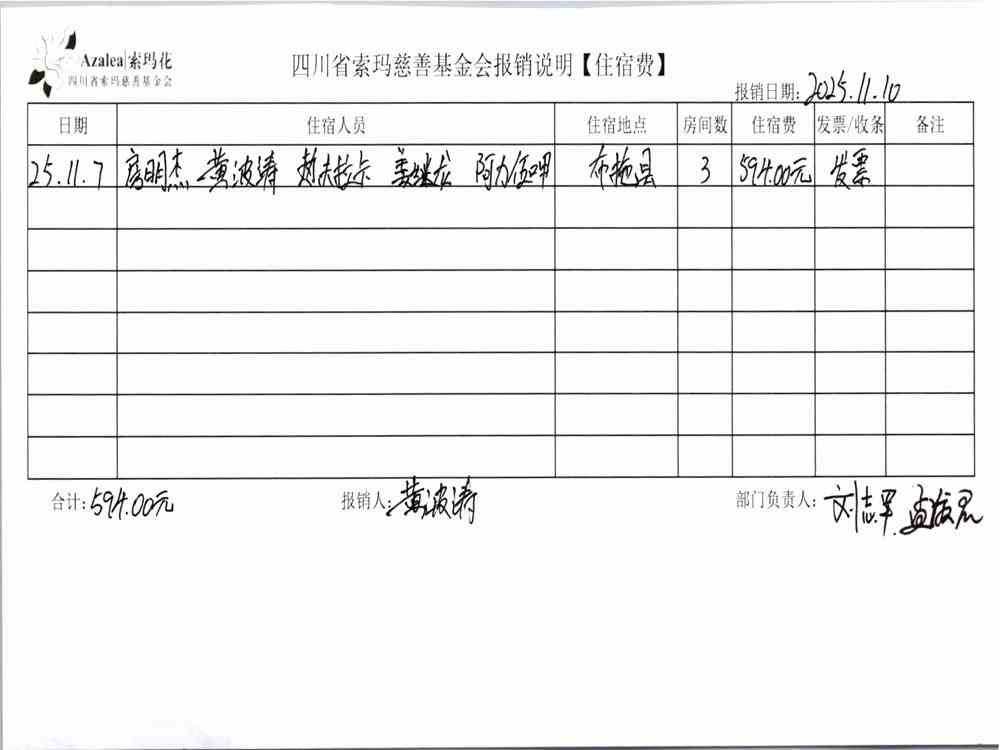 Azalea 索玛花
四川省索玛慈善基金会
四川省索玛慈善基金会报销说明【住宿费】
报销日期: 2025.11.10
日期 住宿人员 住宿地点 房间数 住宿费 发票/收条 备注
25.11.7 房明杰 黄波涛 夫拉卡 姜继龙 阿力伍呷 布拖县 3 594.00元 发票
合计: 594.00元 报销人: 黄波涛 部门负责人: 刘志军